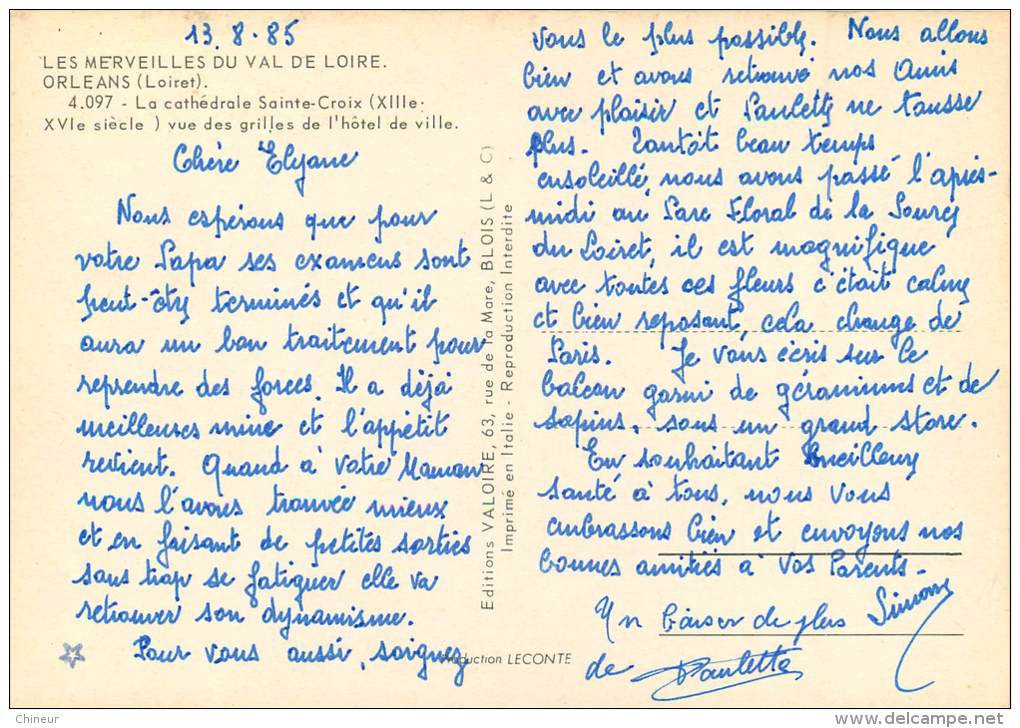 13.8.85
LES MERVEILLES DU VAL DE LOIRE.
ORLEANS (Loiret).
4.097 - La cathédrale Sainte-Croix (XIIIe-
XVIe siècle ) vue des grilles de l'hôtel de ville.
Chère Elyane
Nous espérons que pour
votre Papa ses examens sont
peut-être terminés et qu'il
aura un bon traitement pour
reprendre des forces. Il a déjà
meilleures mine et l'appétit
revient. Quand à votre Maman
nous l'avons trouvée mieux
et en faisant de petites sorties
sans trop se fatiguer elle va
retrouver son dynamisme.
Pour vous aussi, soignez
Editions VALOIRE, 63, rue de la Mare, BLOIS (L & C)
Imprimé en Italie - Reproduction Interdite
Production LECONTE
vous le plus possible. Nous allons
bien et avons retrouvé nos Amis
avec plaisir et Paulette ne tousse
plus. Tantôt beau temps
ensoleillé, nous avons passé l'après-
midi au Parc Floral de la Source
du Loiret, il est magnifique
avec toutes ces fleurs c'était calme
et bien reposant, cela change de
Paris. Je vous écris sur le
balcon garni de géraniums et de
sapins, sous un grand store.
En souhaitant meilleure
santé à tous, nous vous
embrassons bien et envoyons nos
bonnes amitiés à vos Parents.
Simone
Un baiser de plus
de Paulette
Chineur
delcampe.net